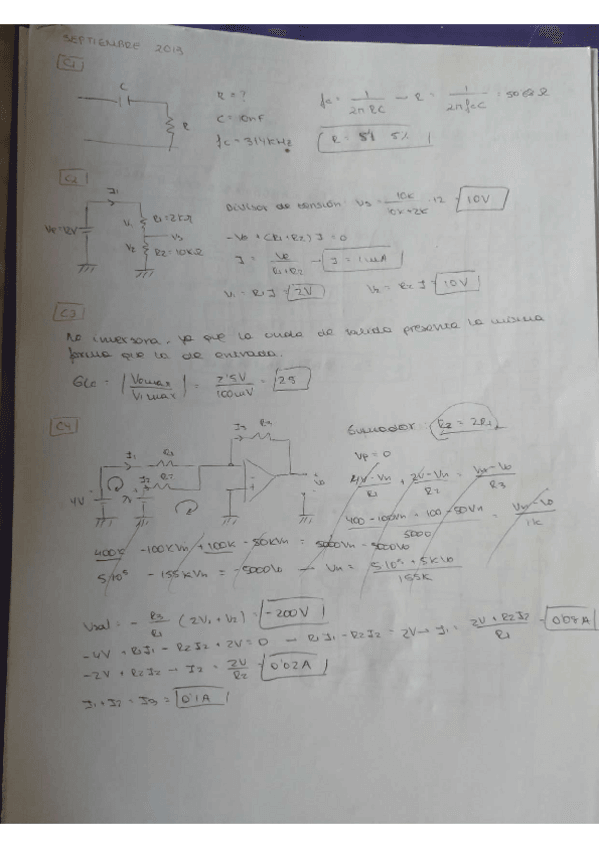 SEPTIEMBRE 2019
C1
C
R
R = ?
C = 10nF
fc = 314KHz
fc = 1/2πRC → R = 1/2πfcC = 50'62 Ω
R = 51 Ω
C2
I1
V1 R1=2KΩ
V3
V2 R2=10KΩ
Divisor de tensión: V3 = 10K/10K+2K · 12 = 10V
-VB + (R1+R2) I = 0
I = VB/R1+R2 → I = 1mA
V1 = R1 I = 2V
V2 = R2 I = 10V
C3
No inversora, ya que la onda de salida presenta la misma
forma que la de entrada.
= |Vomax/Vimax| = 2'5V/100mV = 25
C4
I1 R1
I2 R2
I3 R3
4V
Vo
Sumador: R2 = 2R1
Vp = 0
4V-Vn/R1 + 2V-Vn/R2 = Vn-Vo/R3
400 - 100Vn + 100 - 50Vn/5000 = Vn-Vo/1K
400K - 100KVn + 100K - 50KVn = 5000Vn - 5000Vo
5·10⁵ - 155KVn = -5000Vo → Vn = 5·10⁵ + 5KVo/155K
Vsal = - R3/R1 (2V1 + V2) = -200V
-4V + R1I1 - R2I2 + 2V = 0 → R1I1 - R2I2 = 2V → I1 = 2V + R2I2/R1 = 0'08A
-2V + R2I2 → I2 = 2V/R2 = 0'02A
I1 + I2 = I3 = 0'1A